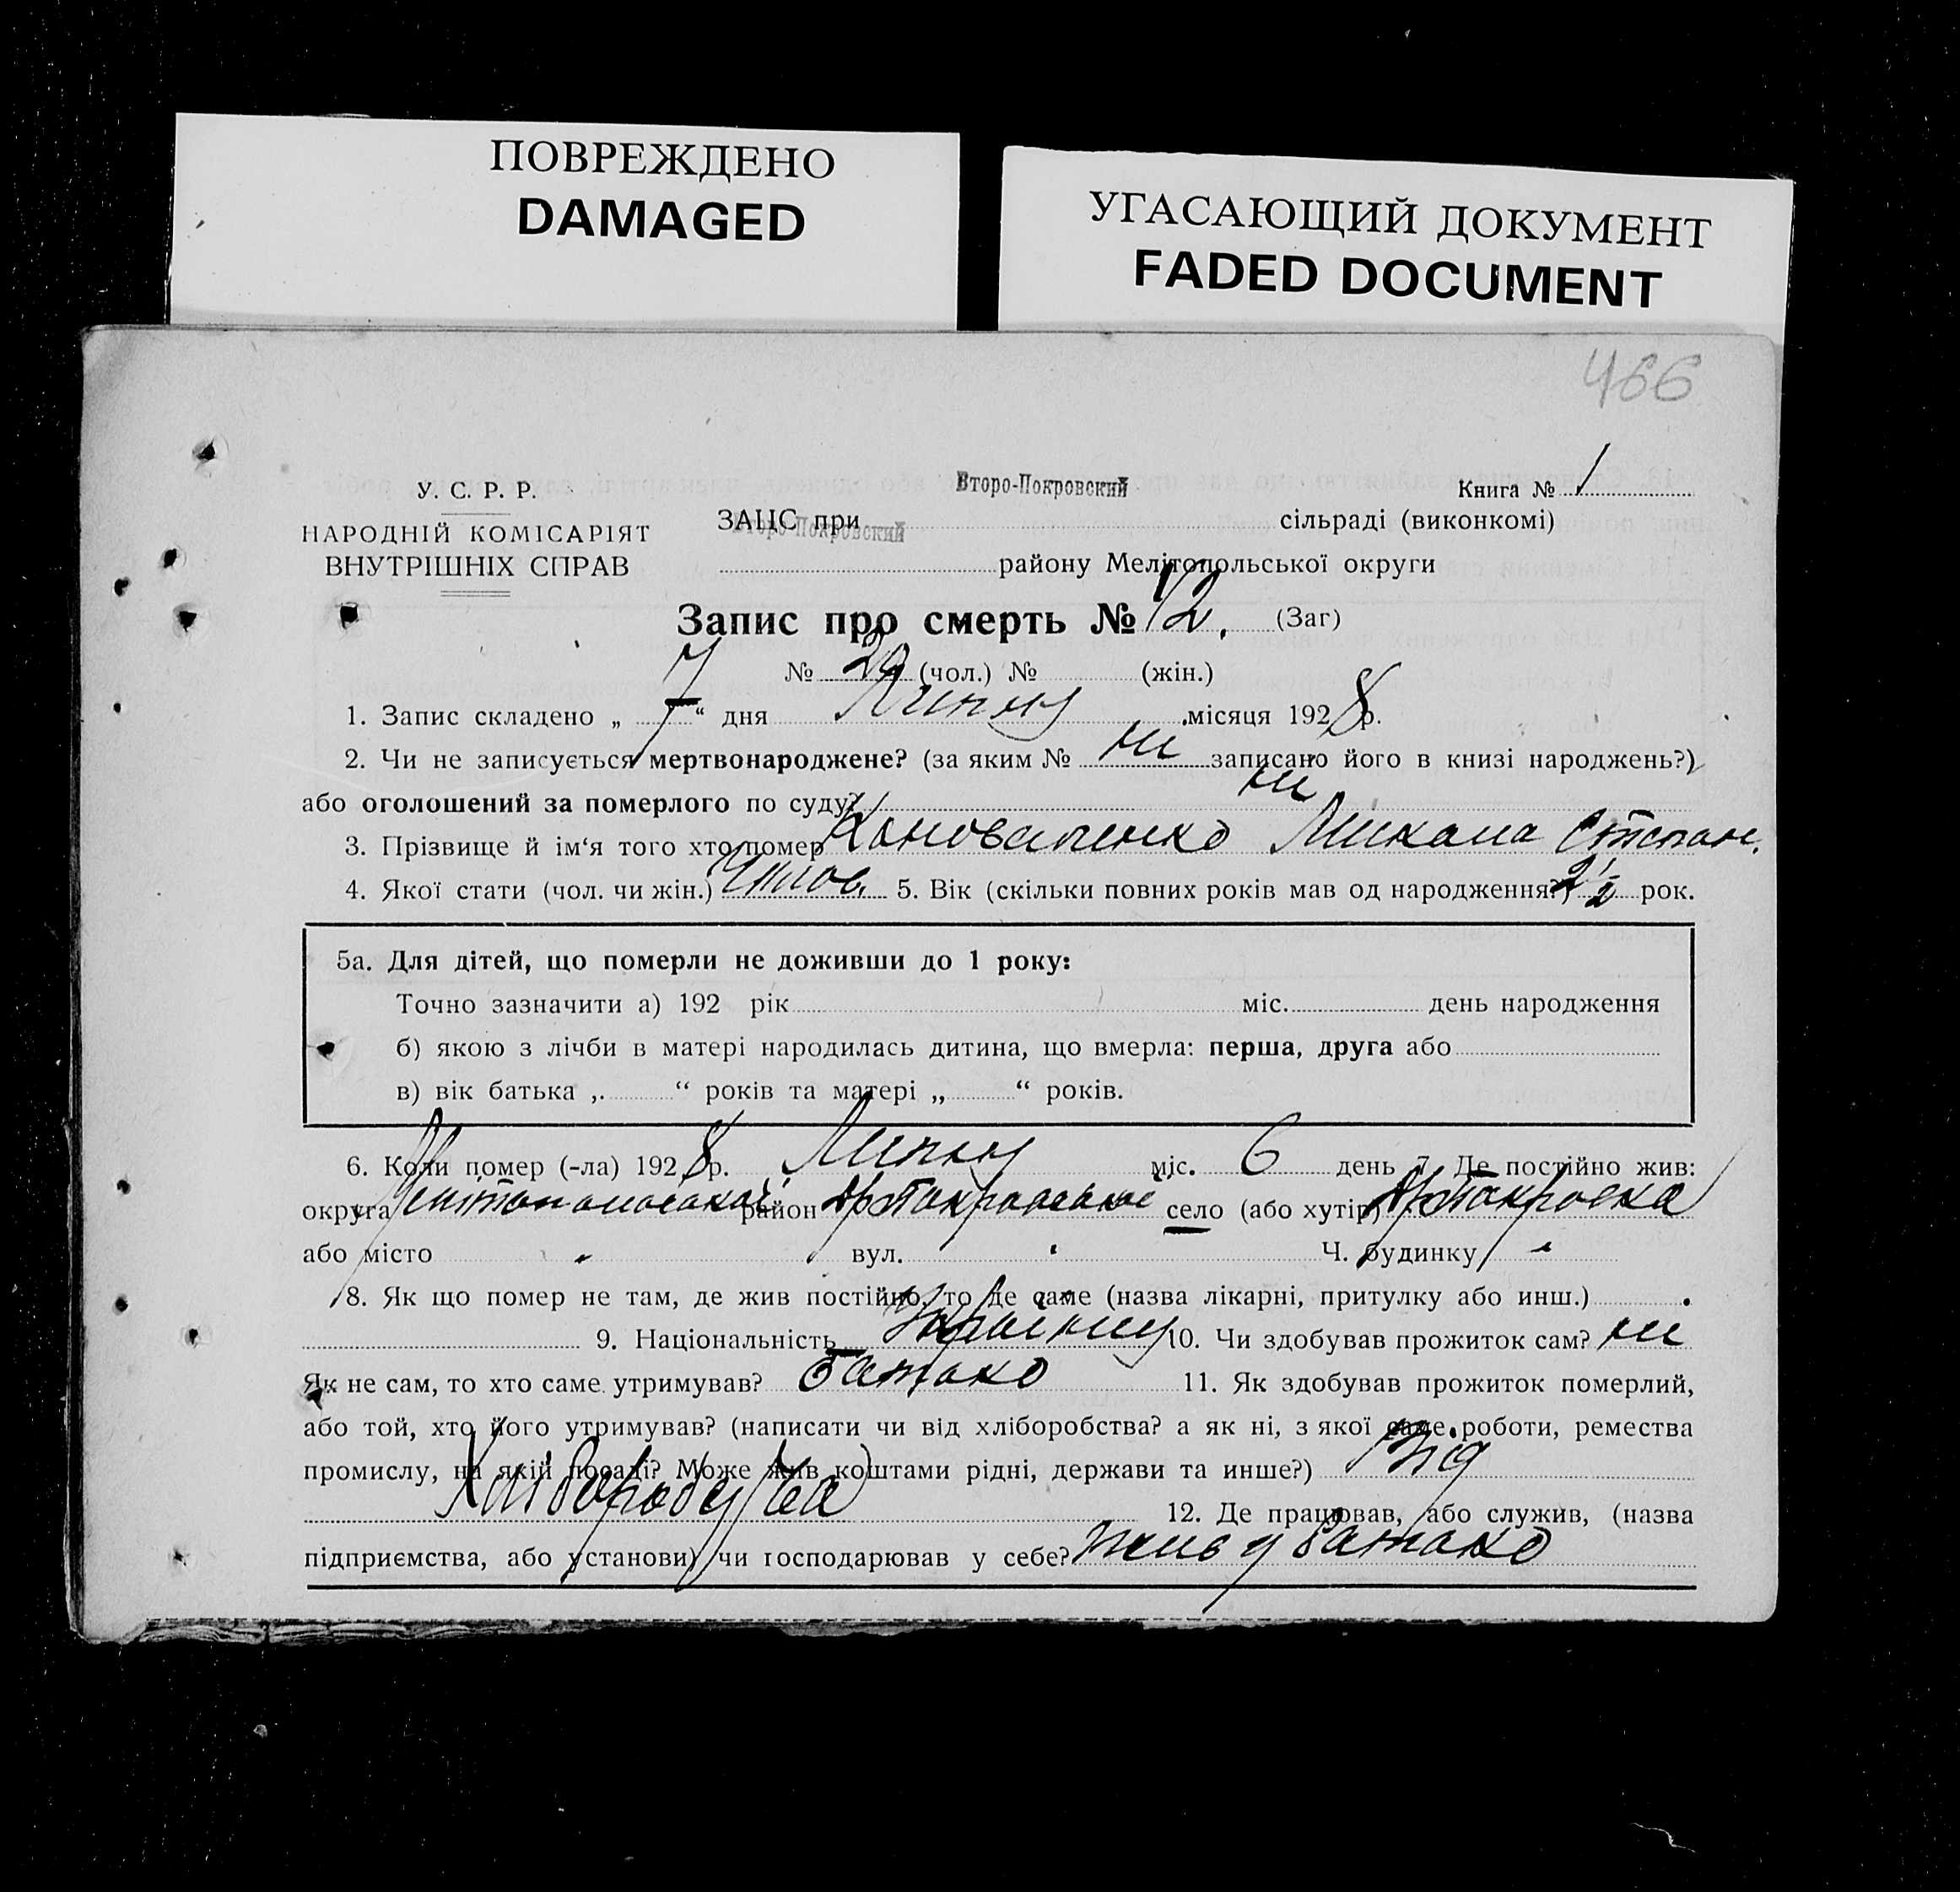 ПОВРЕЖДЕНО
DAMAGED
УГАСАЮЩИЙ ДОКУМЕНТ
FADED DOCUMENT
466
У. С. Р. Р.
НАРОДНІЙ КОМІСАРІЯТ
ВНУТРІШНІХ СПРАВ
Второ-Покровский
Книга № 1
ЗАЦС при сільраді (виконкомі)
Второ-Покровский
району Мелітопольської округи
Запис про смерть № 42. (Заг)
№ 29 (чол.) № (жін.)
1. Запис складено „ 7 “ дня Липня місяця 1928 р.
2. Чи не записується мертвонароджене? (за яким № ни записано його в книзі народжень?)
або оголошений за померлого по суду? ни
3. Прізвище й ім‘я того хто помер Коноваленко Микола Степан.
4. Якої стати (чол. чи жін.) 5. Вік (скільки повних років мав од народження?) 2 1/2 рок.
5а. Для дітей, що померли не доживши до 1 року:
Точно зазначити а) 192 рік міс. день народження
б) якою з лічби в матері народилась дитина, що вмерла: перша, друга або
в) вік батька „ “ років та матері „ “ років.
6. Коли помер (-ла) 1928 р. Липня міс. 6 день 7. Де постійно жив:
округа район село (або хутір)
або місто " вул. " Ч. будинку "
8. Як що помер не там, де жив постійно, то де саме (назва лікарні, притулку або инш.)
9. Національність 10. Чи здобував прожиток сам? ни
Як не сам, то хто саме утримував? батько 11. Як здобував прожиток померлий,
або той, хто його утримував? (написати чи від хліборобства? а як ні, з якої саме роботи, ремества
промислу, на якій посаді? Може жив коштами рідні, держави та инше?) Від
Хліборобства 12. Де працював, або служив, (назва
підприємства, або установи) чи господарював у себе? жив у батько